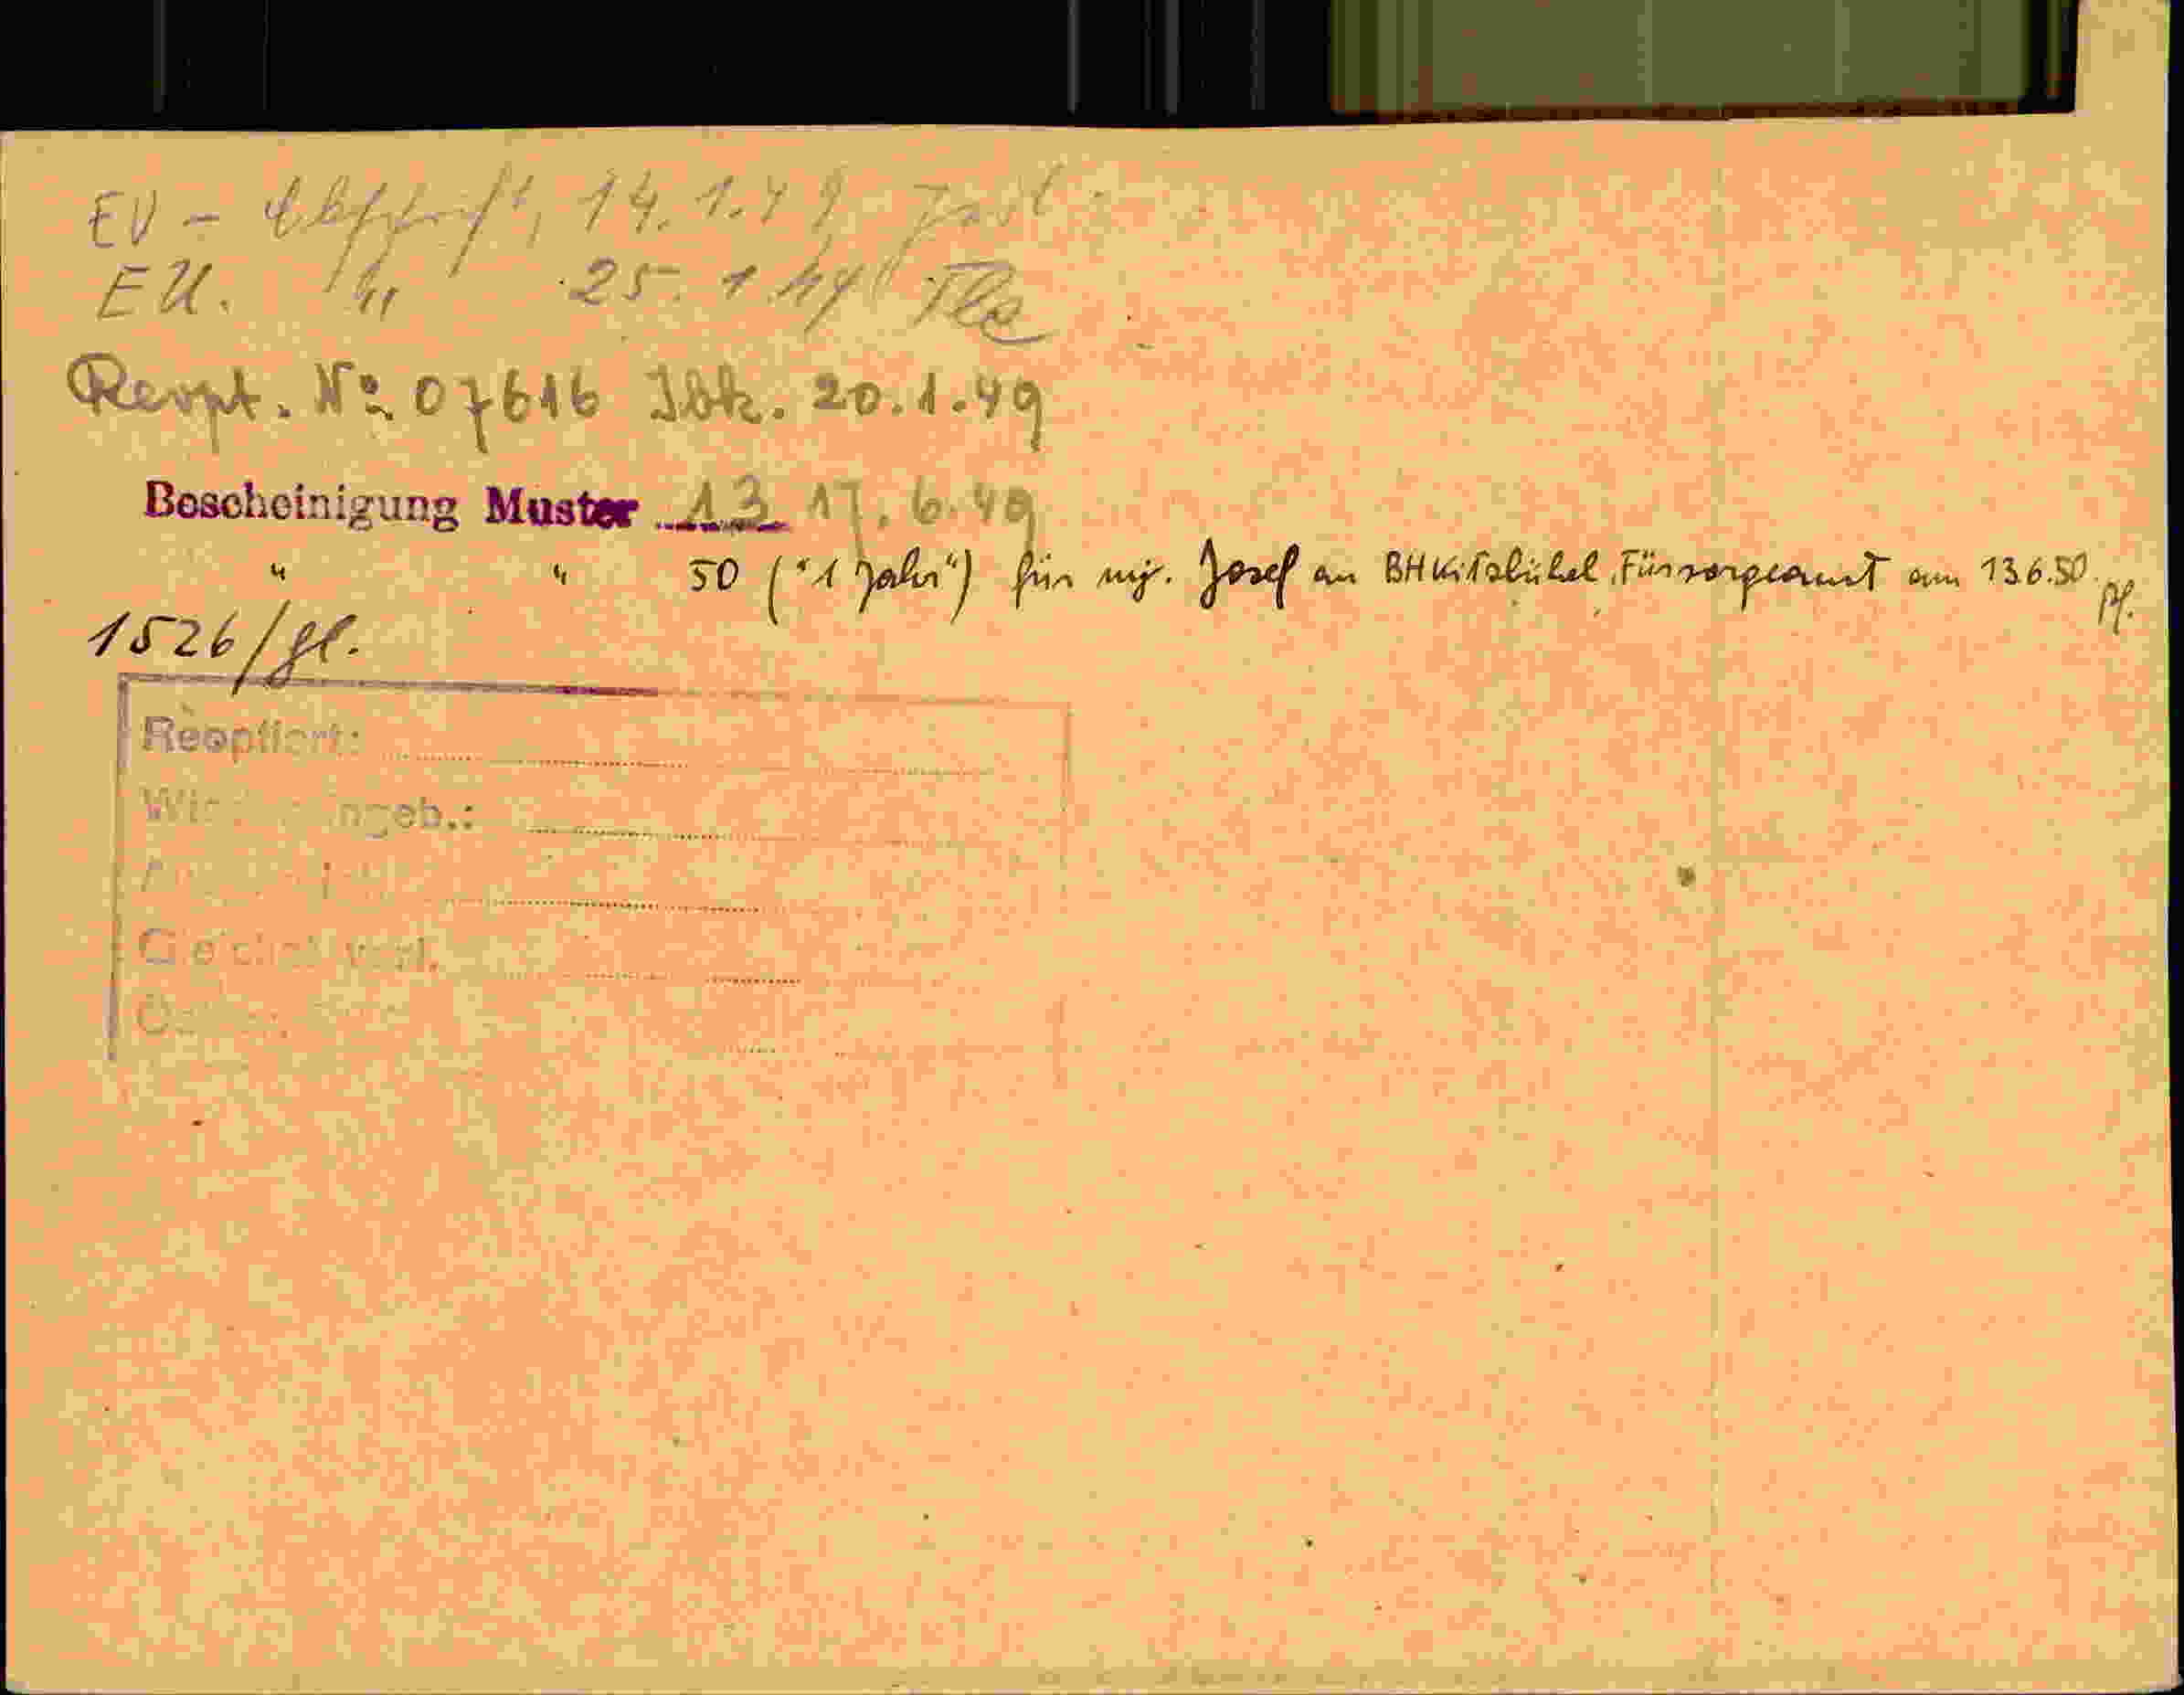 EU - Abschrift, 14.1.49
EU. " 25.1.49
Reopt. No 07616 Ibk. 20.1.49
Bescheinigung Muster 13 17.6.49
" " 50 ("1 Jahr") für mj. Josef an BH Kitzbühel, Fürsorgeamt am 13.6.50. pf.
1526/gl.
Reoptiert: